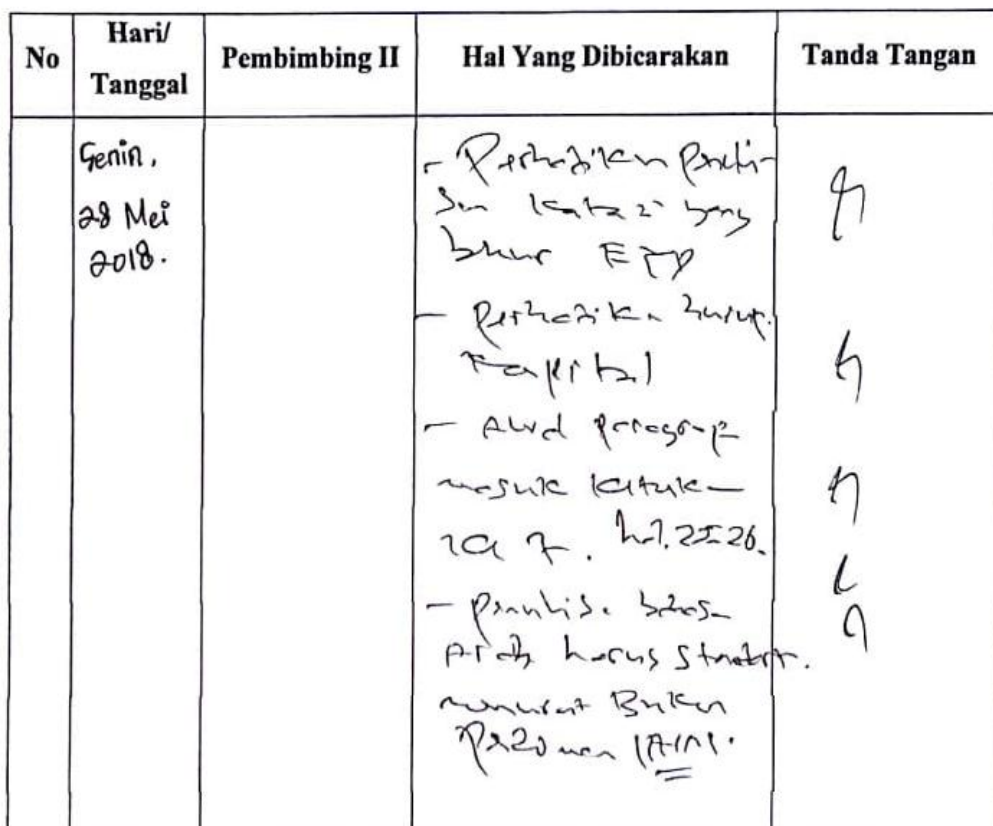 No
Hari/
Tanggal
Pembimbing II
Hal Yang Dibicarakan
Tanda Tangan
Senin,
28 Mei
2018.
- Perhatikan Penuli-
san kata2 yang
EYD
- Perhatikan huruf
Kapital
- Awal paragraf
masuk ketuk-
an 7. hal. 25-26.
- penulisan bahasa
Arab harus standar.
menurut Buku
Pedoman IAIN.